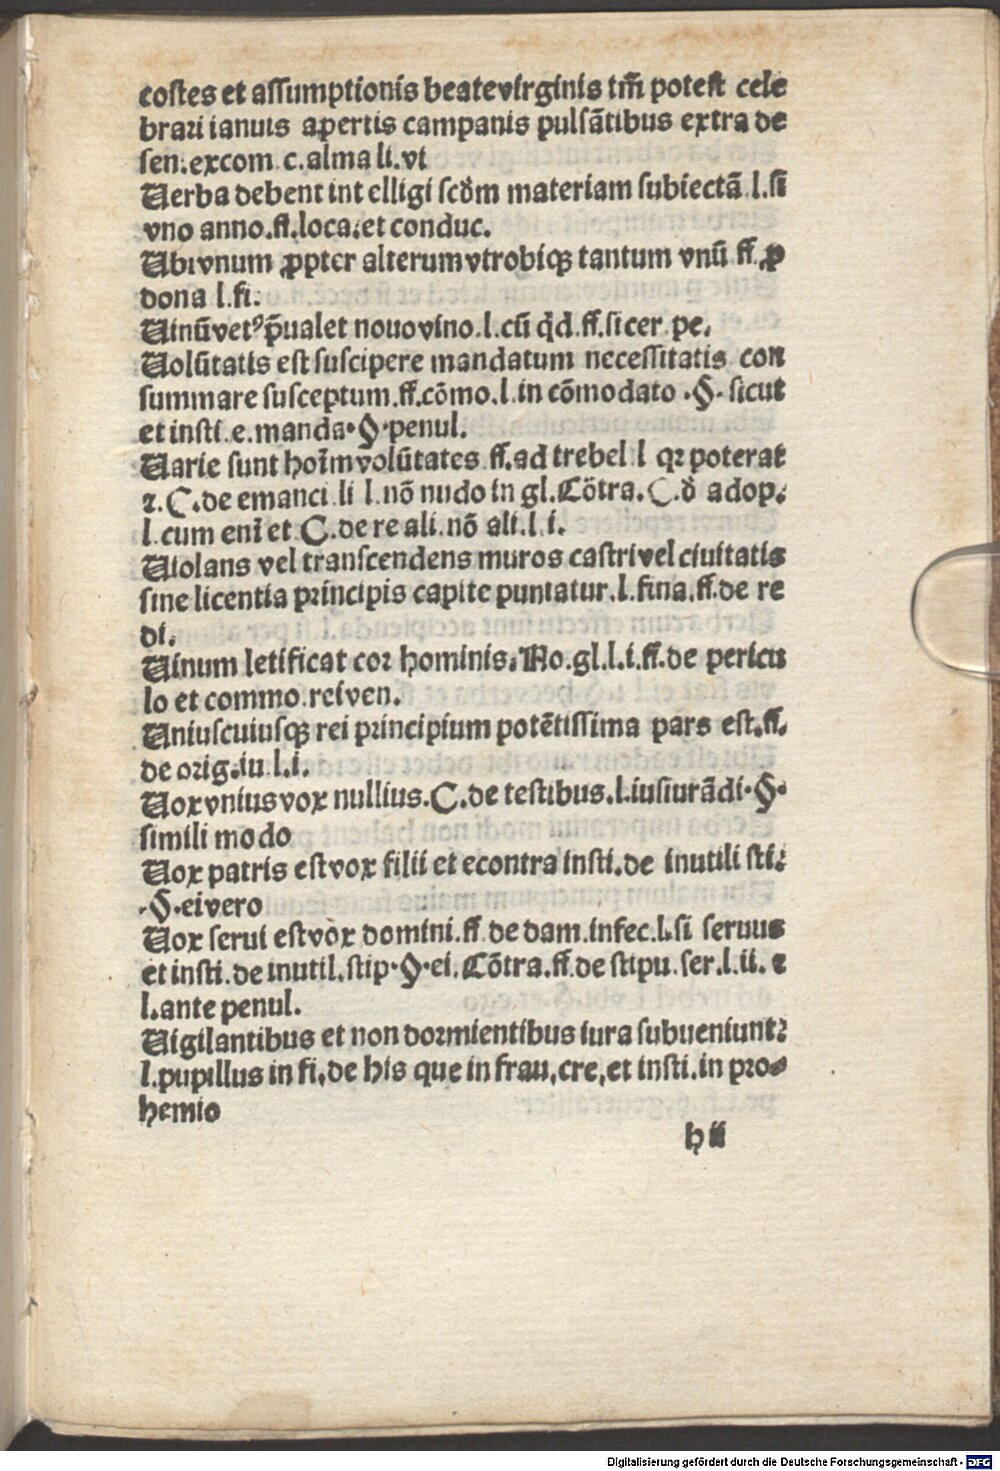 costes et assumptionis beate virginis tm̄ potest cele
brari ianuis apertis campanis pulsātibus extra de
sen. excom c. alma li. vi
Uerba debent int elligi scd̄m materiam subiectā l. si
vno anno. ff. loca. et conduc.
Ubi vnum ꝓpter alterum vtrobiqꝫ tantum vnū ff. ꝓ
dona l. fi.
Uinū vetꝰ p̄ualet nouo vino. l. cū qd̄. ff. si cer pe.
Uolūtatis est suscipere mandatum necessitatis con
summare susceptum. ff. cōmo. l. in cōmodato . § . sicut
et insti. e. manda. § . penul.
Uarie sunt hoīm volūtates ff. ad trebel l qꝛ poterat
⁊. C. de emanci. li l. nō nudo in gl. Cōtra. C. d̄ adop.
l. cum enī et C. de re ali. nō ali. l. i.
Uiolans vel transcendens muros castri vel ciuitatis
sine licentia principis capite puniatur. l. fina. ff. de re
di.
Uinum letificat cor hominis. No. gl. l. i. ff. de pericu
lo et commo. rei ven.
Uniuscuiusqꝫ rei principium potētissima pars est. ff.
de orig. iu. l. i.
Uox vnius vox nullius. C. de testibus. l. iusiurādi. § .
simili modo
Uox patris est vox filii et econtra insti. de inutili sti.
. § . ei vero
Uox serui est vox domini. ff. de dam. infec. l. si seruus
et insti. de inutil. stip. § . ei. Cōtra. ff. de stipu. ser. l. ii. ⁊
l. ante penul.
Uigilantibus et non dormientibus iura subueniunt.
l. pupillus in fi. de his que in frau. cre. et insti. in pro-
hemio
h ii
Digitalisierung gefördert durch die Deutsche Forschungsgemeinschaft - DFG